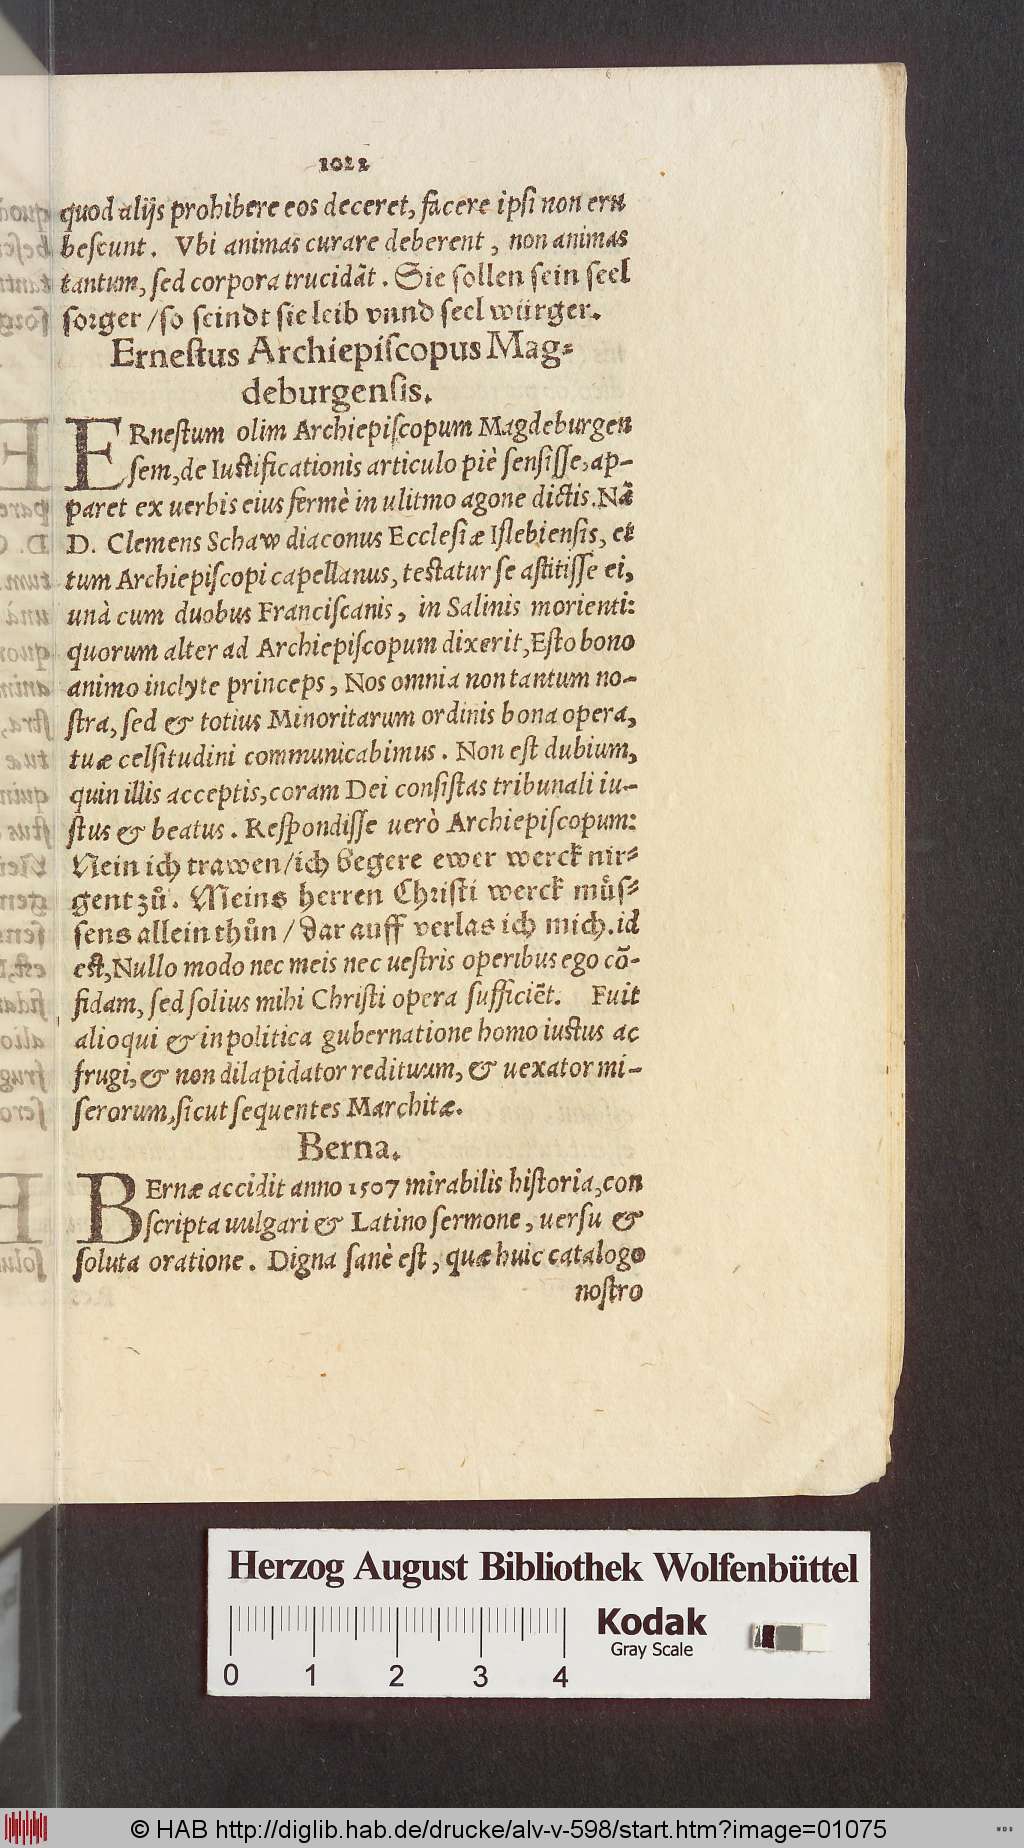 1022
quod alijs prohibere eos deceret, facere ipsi non eru
bescunt. Vbi animas curare deberent, non animas
tantum, sed corpora trucidãt. Sie sollen sein seel
sorger / so seindt sie leib vnnd seel würger.
Ernestus Archiepiscopus Mag=
deburgensis.
ERnestum olim Archiepiscopum Magdeburgen
sem, de Iustificationis articulo piè sensisse, ap-
paret ex uerbis eius fermè in ulitmo agone dictis. Nã
D. Clemens Schaw diaconus Ecclesiæ Islebiensis, et
tum Archiepiscopi capellanus, testatur se astitisse ei,
unà cum duobus Franciscanis, in Salinis morienti:
quorum alter ad Archiepiscopum dixerit, Esto bono
animo inclyte princeps, Nos omnia non tantum no-
stra, sed & totius Minoritarum ordinis bona opera,
tuæ celsitudini communicabimus. Non est dubium,
quin illis acceptis, coram Dei consistas tribunali iu-
stus & beatus. Respondisse uerò Archiepiscopum:
Nein ich trawen / ich begere ewer werck nir=
gent zuͦ. Meins herren Christi werck muͤs=
sens allein thuͦn / dar auff verlas ich mich. id
est, Nullo modo nec meis nec uestris operibus ego cõ-
fidam, sed solius mihi Christi opera sufficiẽt. Fuit
alioqui & in politica gubernatione homo iustus ac
frugi, & non dilapidator redituum, & uexator mi-
serorum, sicut sequentes Marchitæ.
Berna.
BErnæ accidit anno 1507 mirabilis historia, con
scripta uulgari & Latino sermone, uersu &
soluta oratione. Digna sanè est, quæ huic catalogo
nostro
Herzog August Bibliothek Wolfenbüttel
Kodak
Gray Scale
0 1 2 3 4
© HAB http://diglib.hab.de/drucke/alv-v-598/start.htm?image=01075